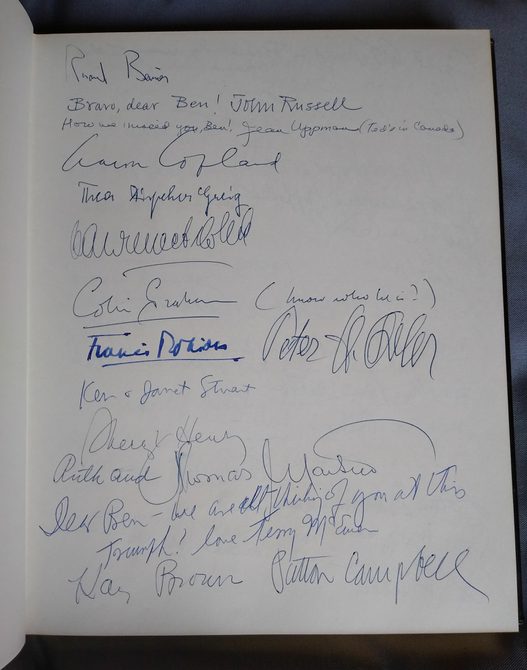 Bravo, dear Ben! John Russell
How we missed you, Ben! Jean Uppman (Ted's in Canada)
Aaron Copland
Thea Dispeker Greig
Colin Graham (know who he is?)
Francis Robinson Peter
Ken & Janet Stuart
Henry
Ruth and Thomas Martin
Dear Ben – we are all thinking of you at this
triumph! love Terry McEwen
Kay Brown Patton Campbell